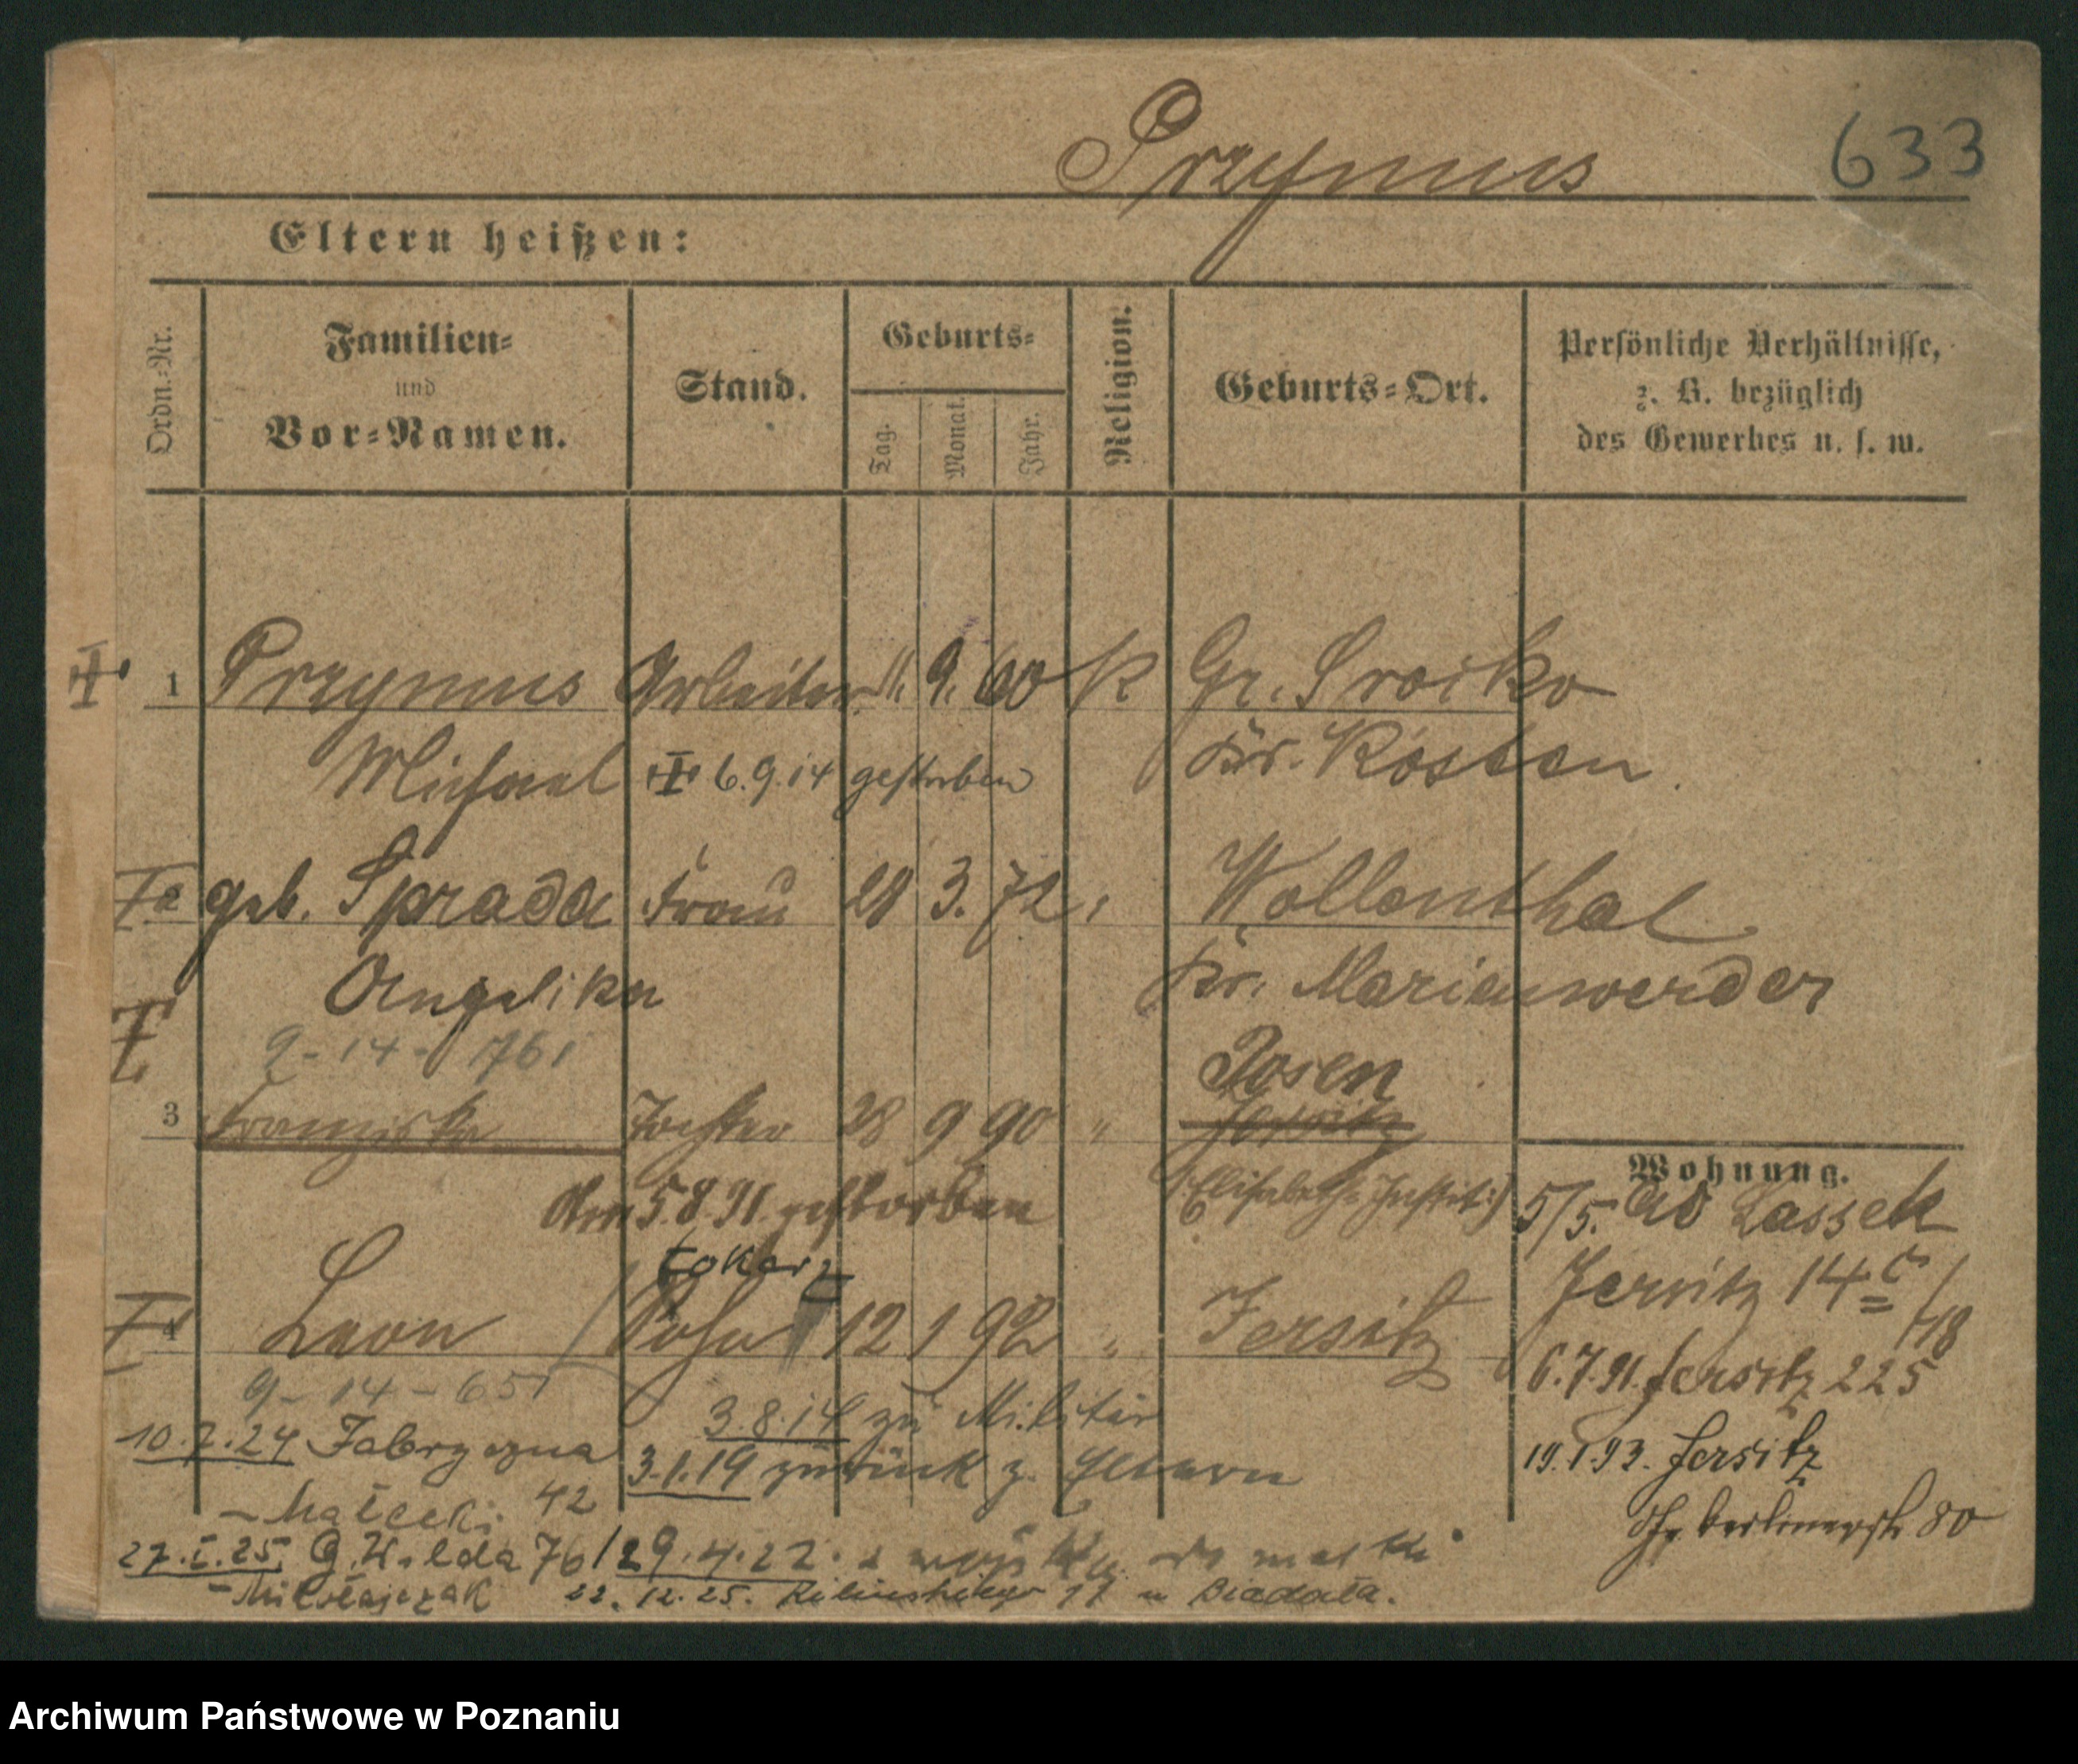 Przymus 633
Eltern heißen:
Ordn.-Nr.
Familien-
und
Vor-Namen.
Stand.
Geburts-
Tag.
Monat.
Jahr.
Religion.
Geburts-Ort.
Persönliche Verhältnisse,
z. B. bezüglich
des Gewerbes u. s. w.
1 Przymus Arbeiter 11. 9. 60 K Gr. Srocko
Michael 6.9.14 gestorben Kr. Kosten
geb. Sprada Frau 28 3. 72 Wollenthal
Angelika Kr. Marienwerder
9-14-761 Posen
3 Franziska Tochter 28 9 90 " Jersitz
Am 5.8.91. gestorben (Elisabeth
tokarz
4 Leon Sohn 12 1 92 " Jersitz
9-14-651
3.8.14 zu Militär
3.1.19 zurück z. Eltern
10.7.24 Fabryczna
- Małecki 42
27.I.25. G. Wilda 76 / 29.4.22. z wojska do matki
- Mikołajczak 22.12.25. Kilińskiego 11 u Biadała.
Wohnung.
5/5. 90 Lassek
Jersitz 14 c /
118
6.7.91. Jersitz 225
19.1.93. Jersitz
Berlinerstr. 80
Archiwum Państwowe w Poznaniu